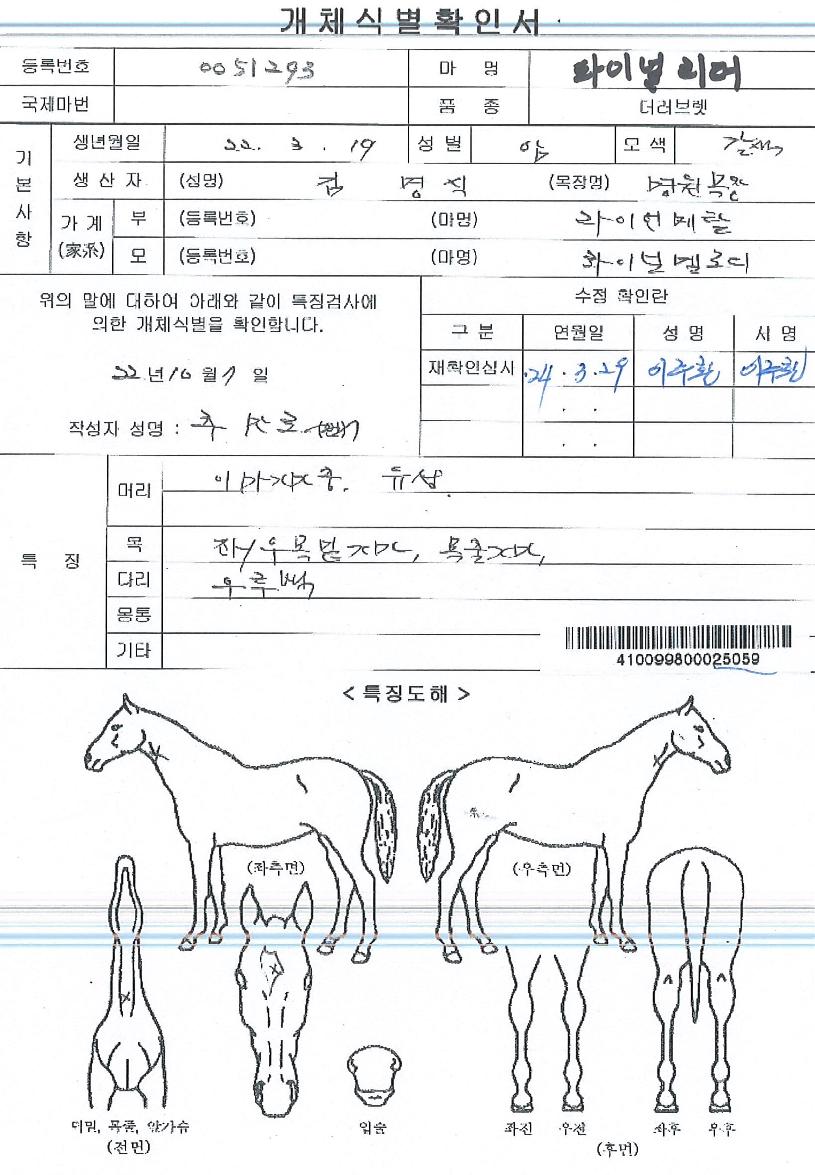 개체식별확인서
등록번호 0051293 마 명 파이널 리더
국제마번 품 종 더러브렛
기본사항
생년월일 22. 3. 19 성 별 암 모 색 갈색
생 산 자 (성명) 김 명 식 (목장명) 명원목장
가 계 (家系) 부 (등록번호) (마명) 라이언메탈
모 (등록번호) (마명) 화이널멜로디
위의 말에 대하여 아래와 같이 특징검사에
의한 개체식별을 확인합니다.
22년 10월 7일
작성자 성명 :
수정 확인란
구 분 연월일 성 명 서 명
재확인심사 24 . 3 . 29 이주환 이주환
. .
. .
특 징
머리 이마가마 중. 유성
목 좌/우목밑가마, 목줄가마,
다리
몸통
기타
410099800025059
< 특징도해 >
(좌측면)
(우측면)
턱밑, 목줄, 앞가슴
(전면)
입술
좌전 우전 좌후 우후
(후면)